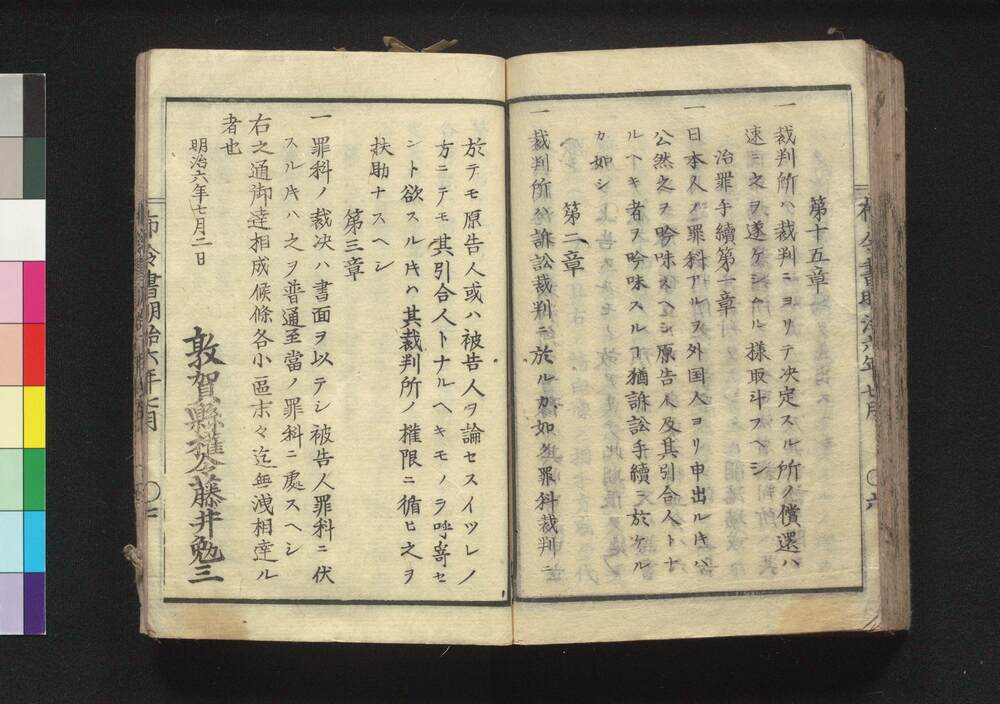 第十五章
一 裁判所ハ裁判ニヨリテ决定スル所ノ償還ハ
速ニ之ヲ遂ケシムル様取斗フヘシ
治罪手續第一章
一 日本人ノ罪科アルヲ外国人ヨリ申出ルキハ
公然之ヲ吟味スヘシ原告人及其引合人トナ
ルヘキ者ヲ吟味スルヿ猶訴訟手續ニ於ケル
カ如シ
第二章
一 裁判所ハ訴訟裁判ニ於ルカ如ク罪科裁判ニ
於テモ原告人或ハ被告人ヲ論セスイツレノ
方ニテモ其引合人トナルヘキモノヲ呼寄セ
ント欲スルキハ其裁判所ノ権限ニ循ヒ之ヲ
扶助ナスヘシ
第三章
一 罪科ノ裁决ハ書面ヲ以テシ被告人罪科ニ伏
スルキハ之ヲ普通至當ノ罪科ニ處スヘシ
右之通御達相成候條各小區末々迄無洩相達ル
者也
明治六年七月二日
敦賀縣権令藤井勉三
布令書明治六年七月